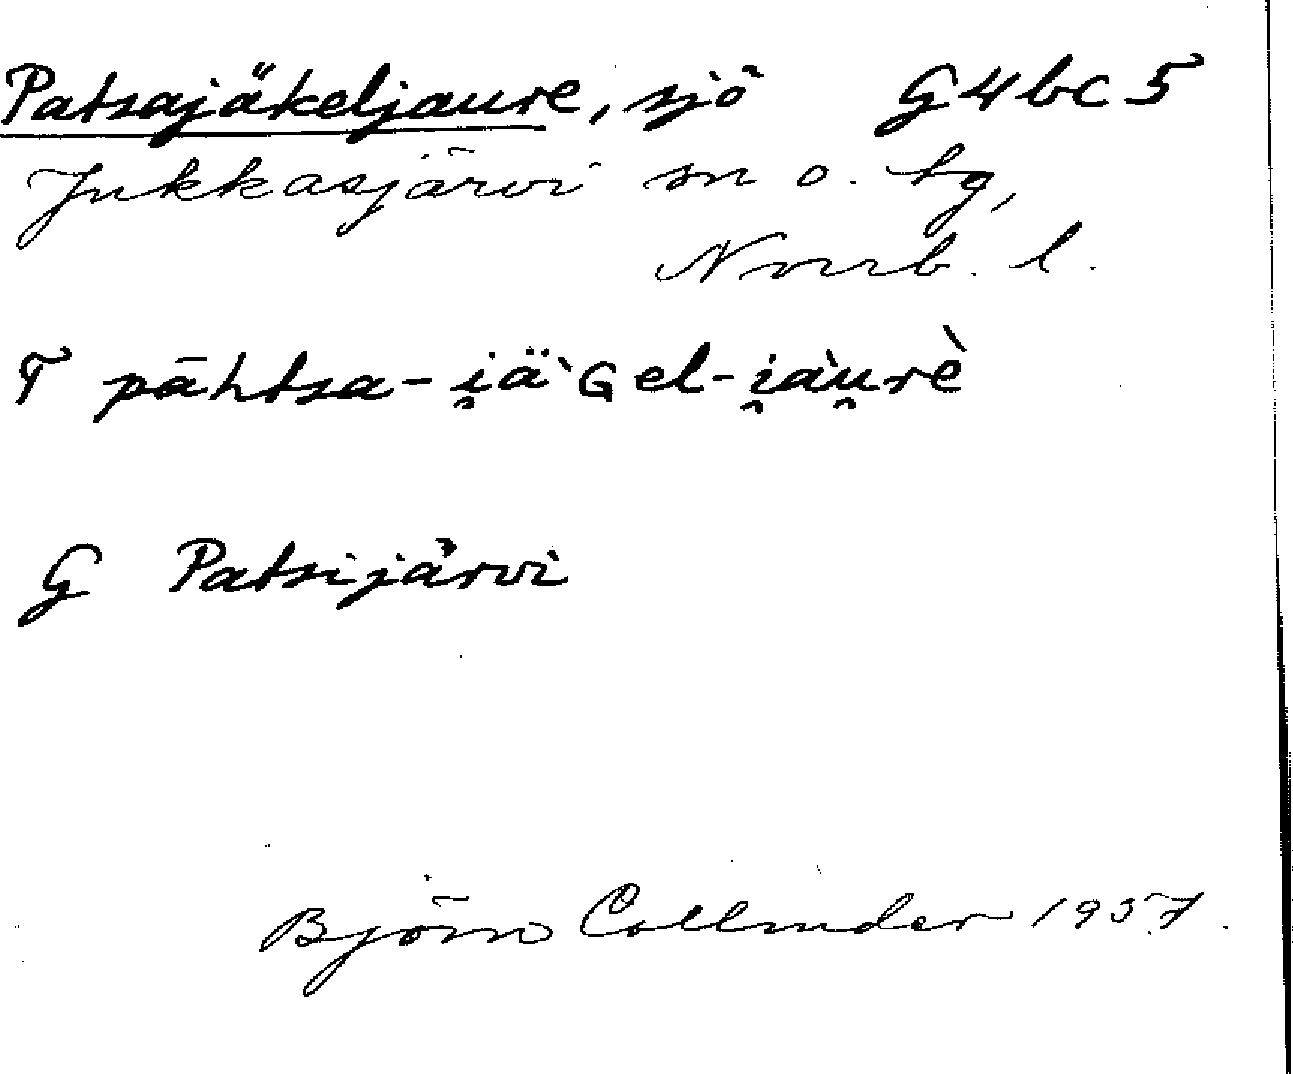 Patsajäkeljaure, sjö G4bc5
Jukkasjärvi sn o. tg,
Norrb. l.
T pāhtsa-i̯ä`Gel-i̯àu̯rè
G Patsijärvi
Björn Collinder 1957.